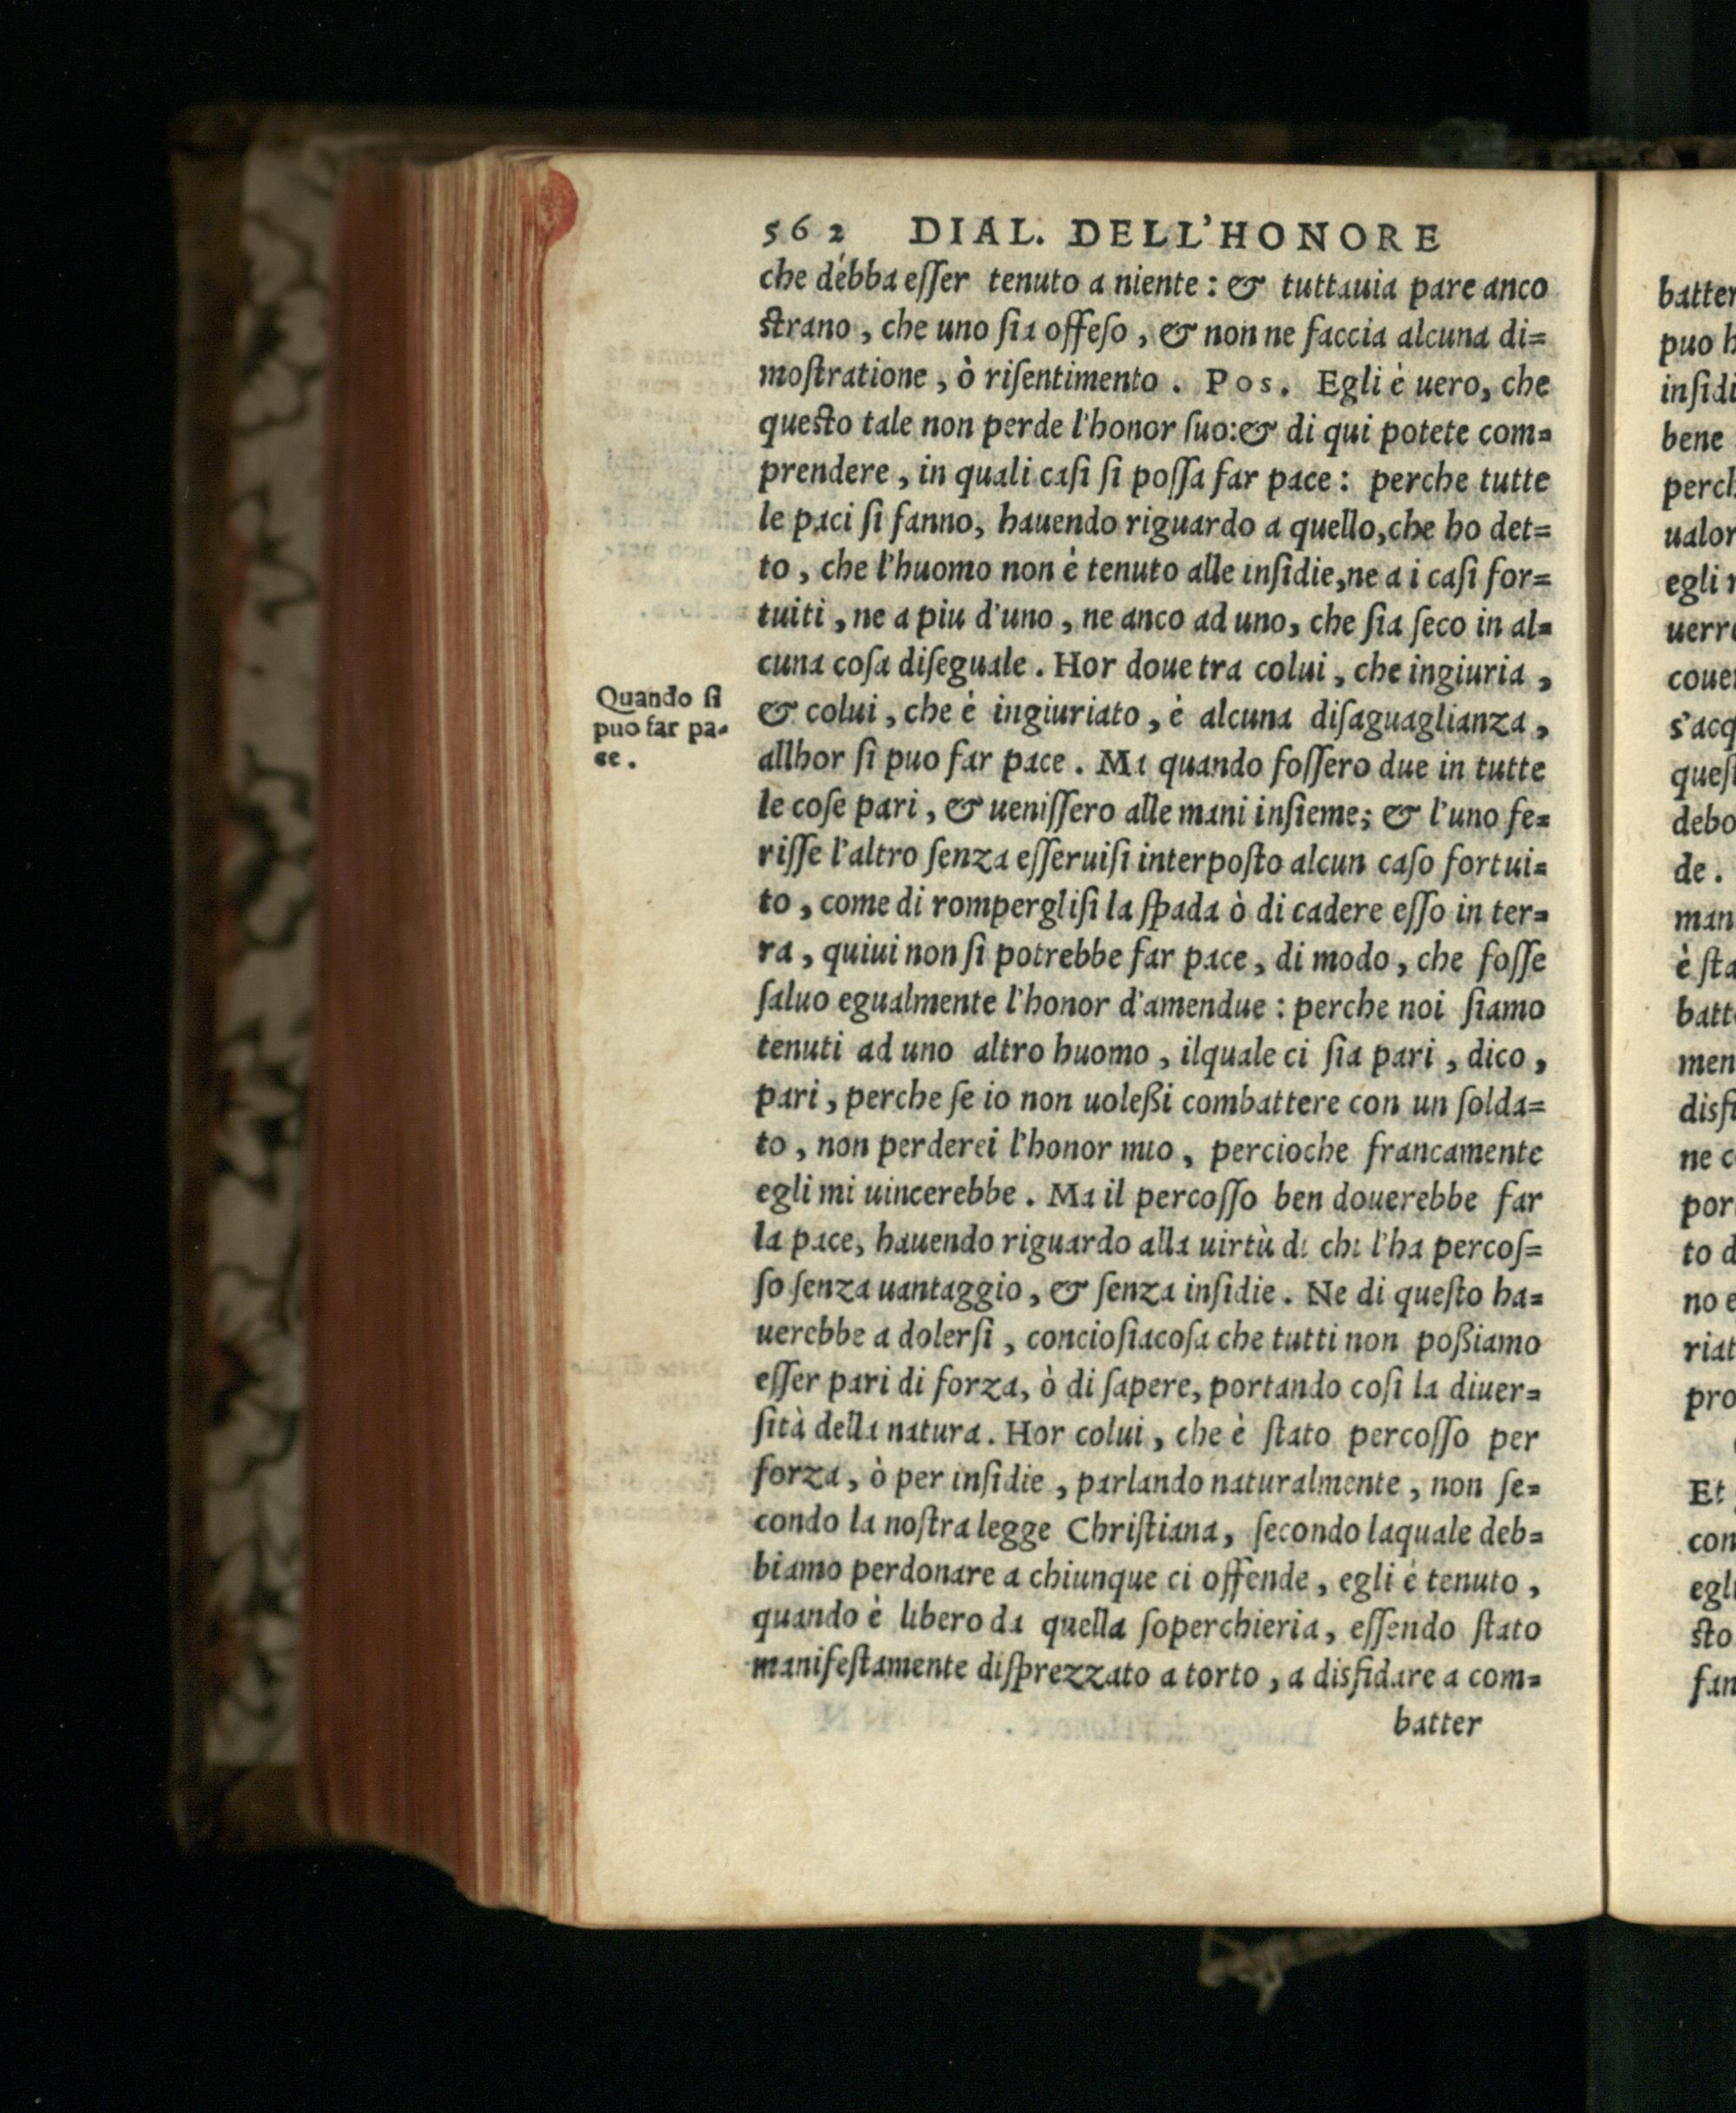 562 DIAL. DELL'HONORE
che debba eſſer tenuto a niente: & tuttauia pare anco
ſtrano, che uno ſia offeſo, & non ne faccia alcuna di=
moſtratione, ò riſentimento. Pos. Egli è uero, che
queſto tale non perde l'honor ſuo:& di qui potete com=
prendere, in quali caſi ſi poſſa far pace: perche tutte
le paci ſi fanno, hauendo riguardo a quello,che ho det=
to, che l'huomo non è tenuto alle inſidie,ne a i caſi for=
tuiti, ne a piu d'uno, ne anco ad uno, che ſia ſeco in al=
cuna coſa diſeguale. Hor doue tra colui, che ingiuria,
& colui, che è ingiuriato, è alcuna diſaguaglianza,
allhor ſi puo far pace. Ma quando foſſero due in tutte
le coſe pari, & ueniſſero alle mani inſieme; & l'uno fe=
riſſe l'altro ſenza eſſeruiſi interpoſto alcun caſo fortui=
to, come di rompergliſi la ſpada ò di cadere eſſo in ter=
ra, quiui non ſi potrebbe far pace, di modo, che foſſe
ſaluo egualmente l'honor d'amendue: perche noi ſiamo
tenuti ad uno altro huomo, ilquale ci ſia pari, dico,
pari, perche ſe io non uoleßi combattere con un ſolda=
to, non perderei l'honor mio, percioche francamente
egli mi uincerebbe. Ma il percoſſo ben douerebbe far
la pace, hauendo riguardo alla uirtù di chi l'ha percoſ=
ſo ſenza uantaggio, & ſenza inſidie. Ne di queſto ha=
uerebbe a dolerſi, concioſiacoſa che tutti non poßiamo
eſſer pari di forza, ò di ſapere, portando coſi la diuer=
ſità della natura. Hor colui, che è ſtato percoſſo per
forza, ò per inſidie, parlando naturalmente, non ſe=
condo la noſtra legge Chriſtiana, ſecondo laquale deb=
biamo perdonare a chiunque ci offende, egli è tenuto,
quando è libero da quella ſoperchieria, eſſendo ſtato
manifeſtamente diſprezzato a torto, a disfidare a com=
batter
Quando ſi
puo far pa=
ce.
batter
puo h
inſidi
bene
perch
ualor
egli
uerr
coue
s'acq
queſt
debo
de.
man
è ſta
batt
men
disfi
ne c
por
to d
no e
riat
pro
Et
con
egli
ſto
fan